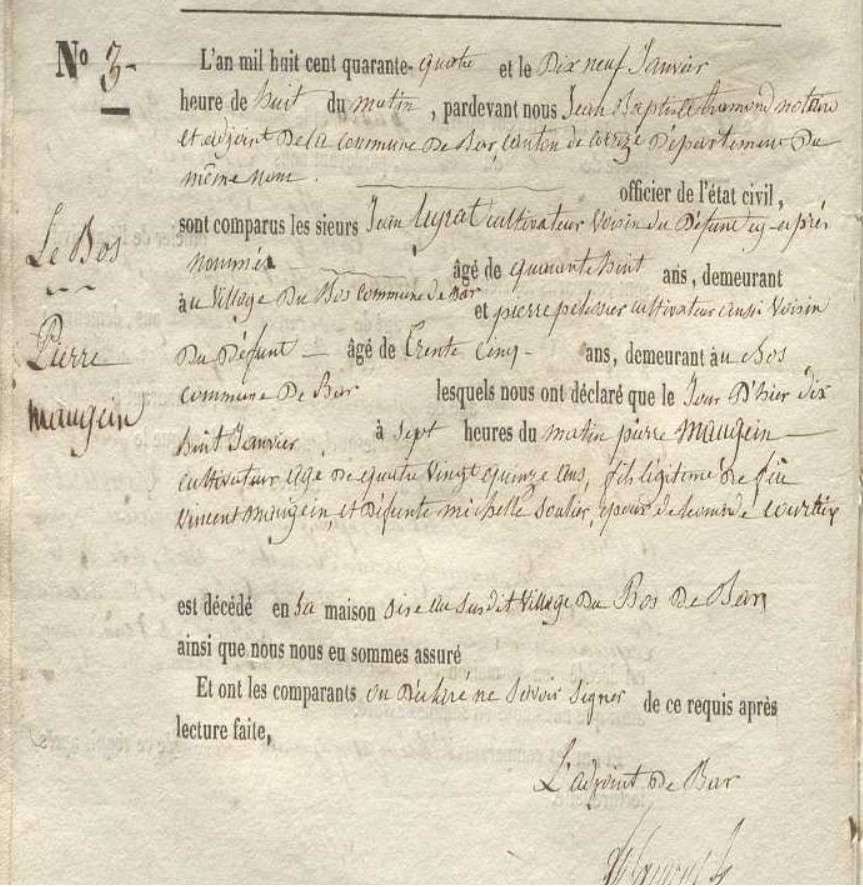 N.º 3-
L'an mil huit cent quarante-quatre et le Dix neuf Janvier
heure de huit du matin, pardevant nous Jean Baptiste notaire
et adjoint de la commune de Bar, canton de Corrèze Département du
même nom. officier de l'état civil,
sont comparus les sieurs Jean cultivateur voisin du Défunt cy-après
nommé âgé de quarante huit ans, demeurant
au village du Bos commune de Bar et pierre cultivateur aussi voisin
Du Défunt — âgé de Trente cinq- ans, demeurant au Bos
commune De Bar lesquels nous ont déclaré que le Jour D'hier dix
huit Janvier à sept heures du matin pierre Maugein —
cultivateur age de quatre vingt quinze ans, fils legitime de feu
Vincent Maugein, et Défunte michelle Soulier, epoux de
est décédé en sa maison sise au susdit village du Bos de Bar
ainsi que nous nous en sommes assuré
Et ont les comparants ne savoir signer de ce requis après
lecture faite,
L'adjoint de Bar
Le Bos
Pierre
maugein